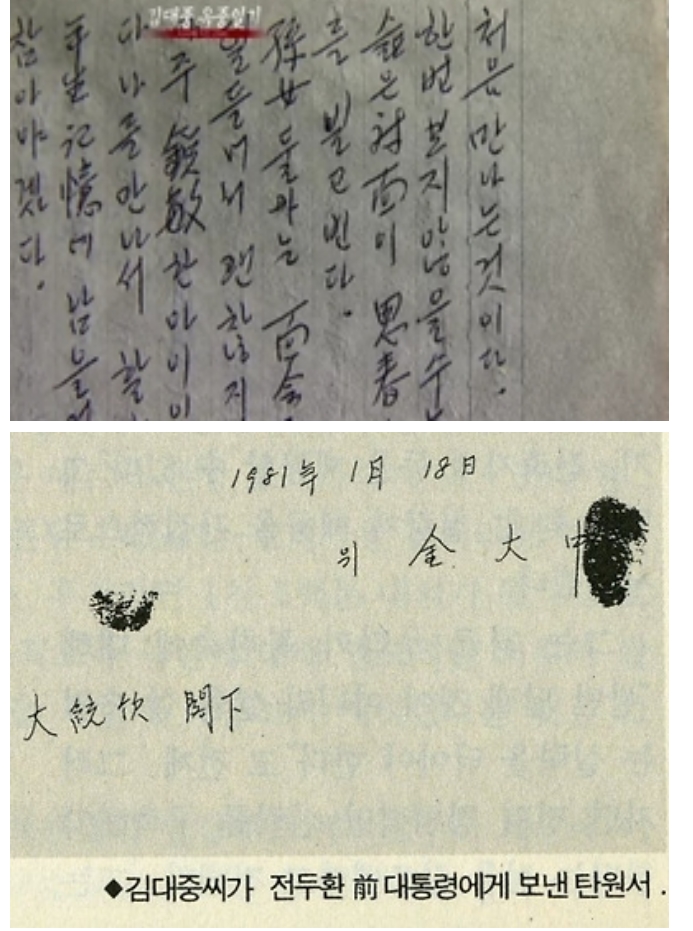 김대중 옥중일기
처음 만나는것이다.
한번 보지않을수
은 対面이 思春
를 빌고빈다.
孫女들과는 面会
을 들어서 괜찮지
주 銳敏한 아이이
다 나를 만나서 할
平生 記憶에 남을
참아야겠다.
1981年 1月 18日
위 金 大 中
大統領 閣下
◆김대중씨가 전두환 前 대통령에게 보낸 탄원서.